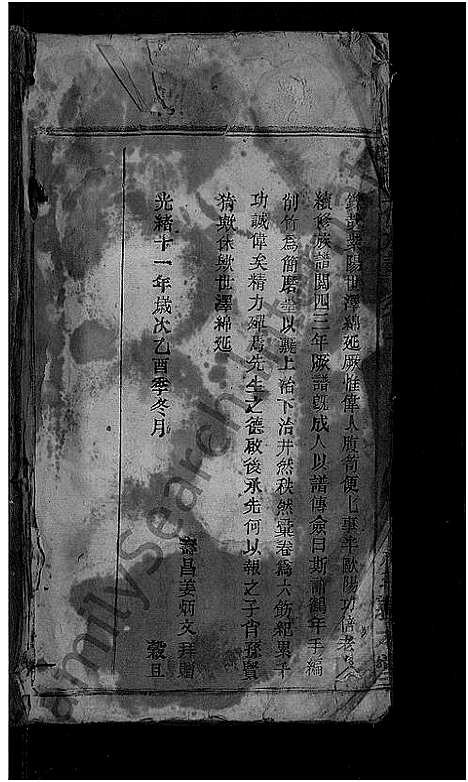 滎陽世澤綿延厥惟偉人腹笥便便事半歐陽功倍老
續修族譜閱四三年厥譜旣成人以譜傳僉曰斯 鶴年手編
削竹爲簡磨 以 上治下治井然秩然彙卷爲六 紀累千
功誠偉矣精力 焉先生之德啟後承先何以報之子肖孫賢
猗歟休歟世澤綿延
光緒十一年歲次乙酉季冬月 穀旦
壽昌姜炳文拜贈
familysearch